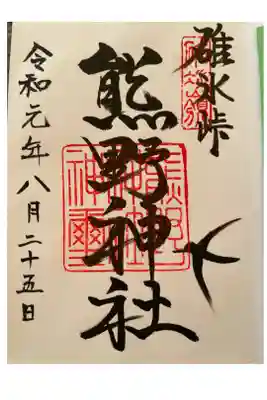 碓氷峠
熊野神社
令和元年八月二十五日